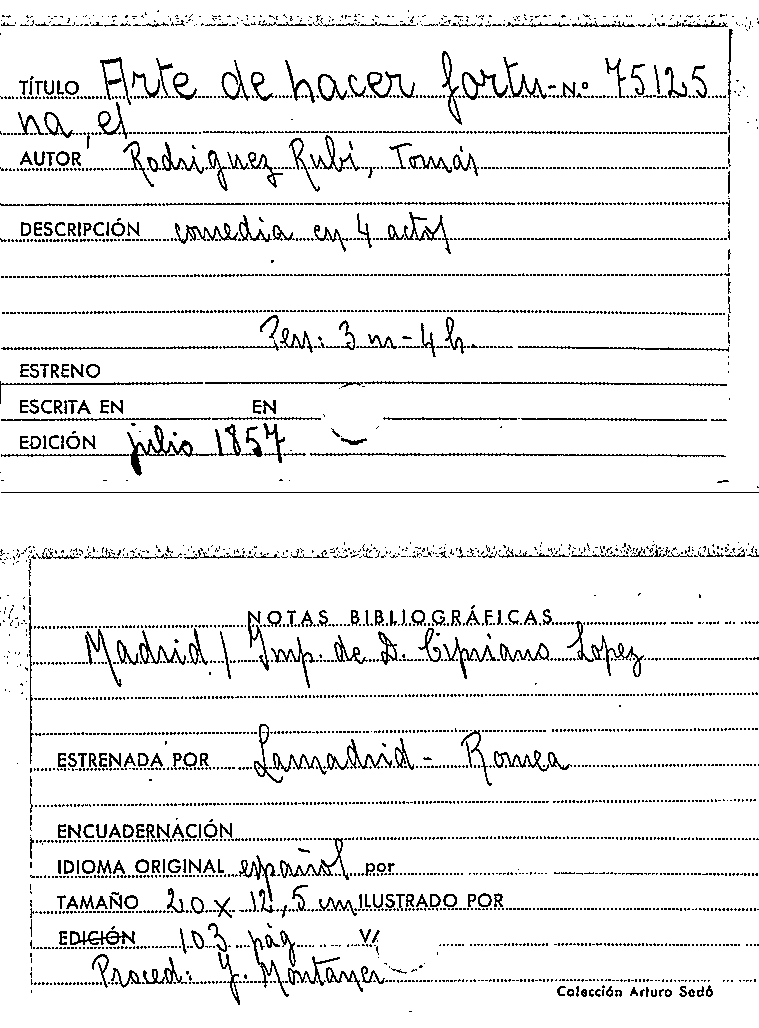 TÍTULO Arte de hacer fortu- N.º 75125
na, el
AUTOR Rodriguez Rubí, Tomás
DESCRIPCIÓN comedia en 4 actos
Pers: 3 m - 4 h.
ESTRENO
ESCRITA EN EN
EDICIÓN julio 1857
NOTAS BIBLIOGRÁFICAS
Madrid / Imp. de D. Cipriano Lopez
ESTRENADA POR Lamadrid - Romea
ENCUADERNACIÓN
IDIOMA ORIGINAL español por
TAMAÑO 20 x 12,5 cm ILUSTRADO POR
EDICIÓN 103 pág V/
Proced: Y. Montaner
Colección Arturo Sedó